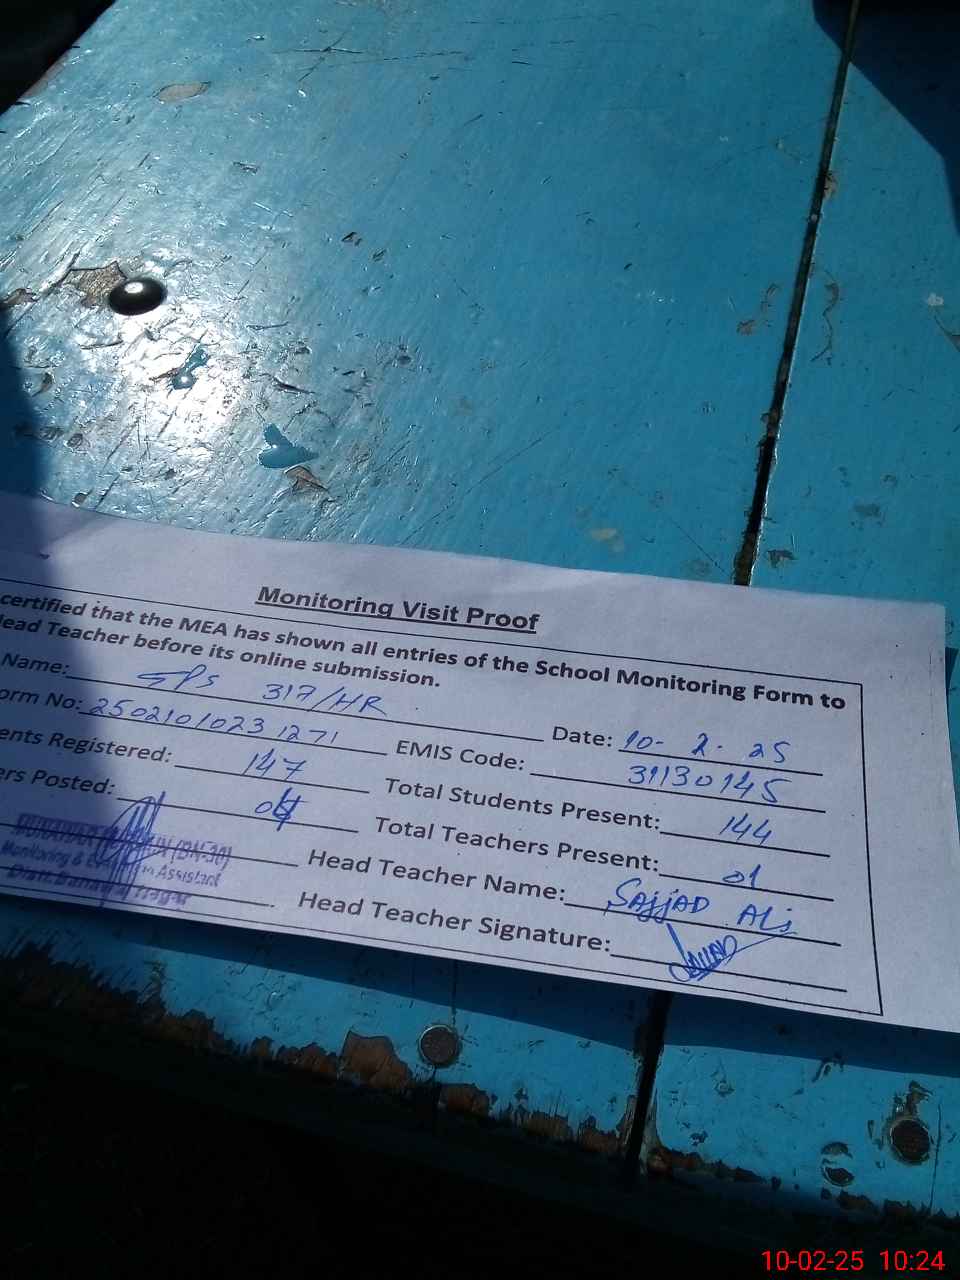 Monitoring Visit Proof
certified that the MEA has shown all entries of the School Monitoring Form to
Head Teacher before its online submission.
Name: GPS 317/HR Date: 10-2-25
Form No: 25021010231271 EMIS Code: 31130145
ents Registered: 147 Total Students Present: 144
ers Posted: Total Teachers Present: 01
Head Teacher Name: SAjjAD ALi
Head Teacher Signature:
Monitoring & Assistant
10-02-25 10:24